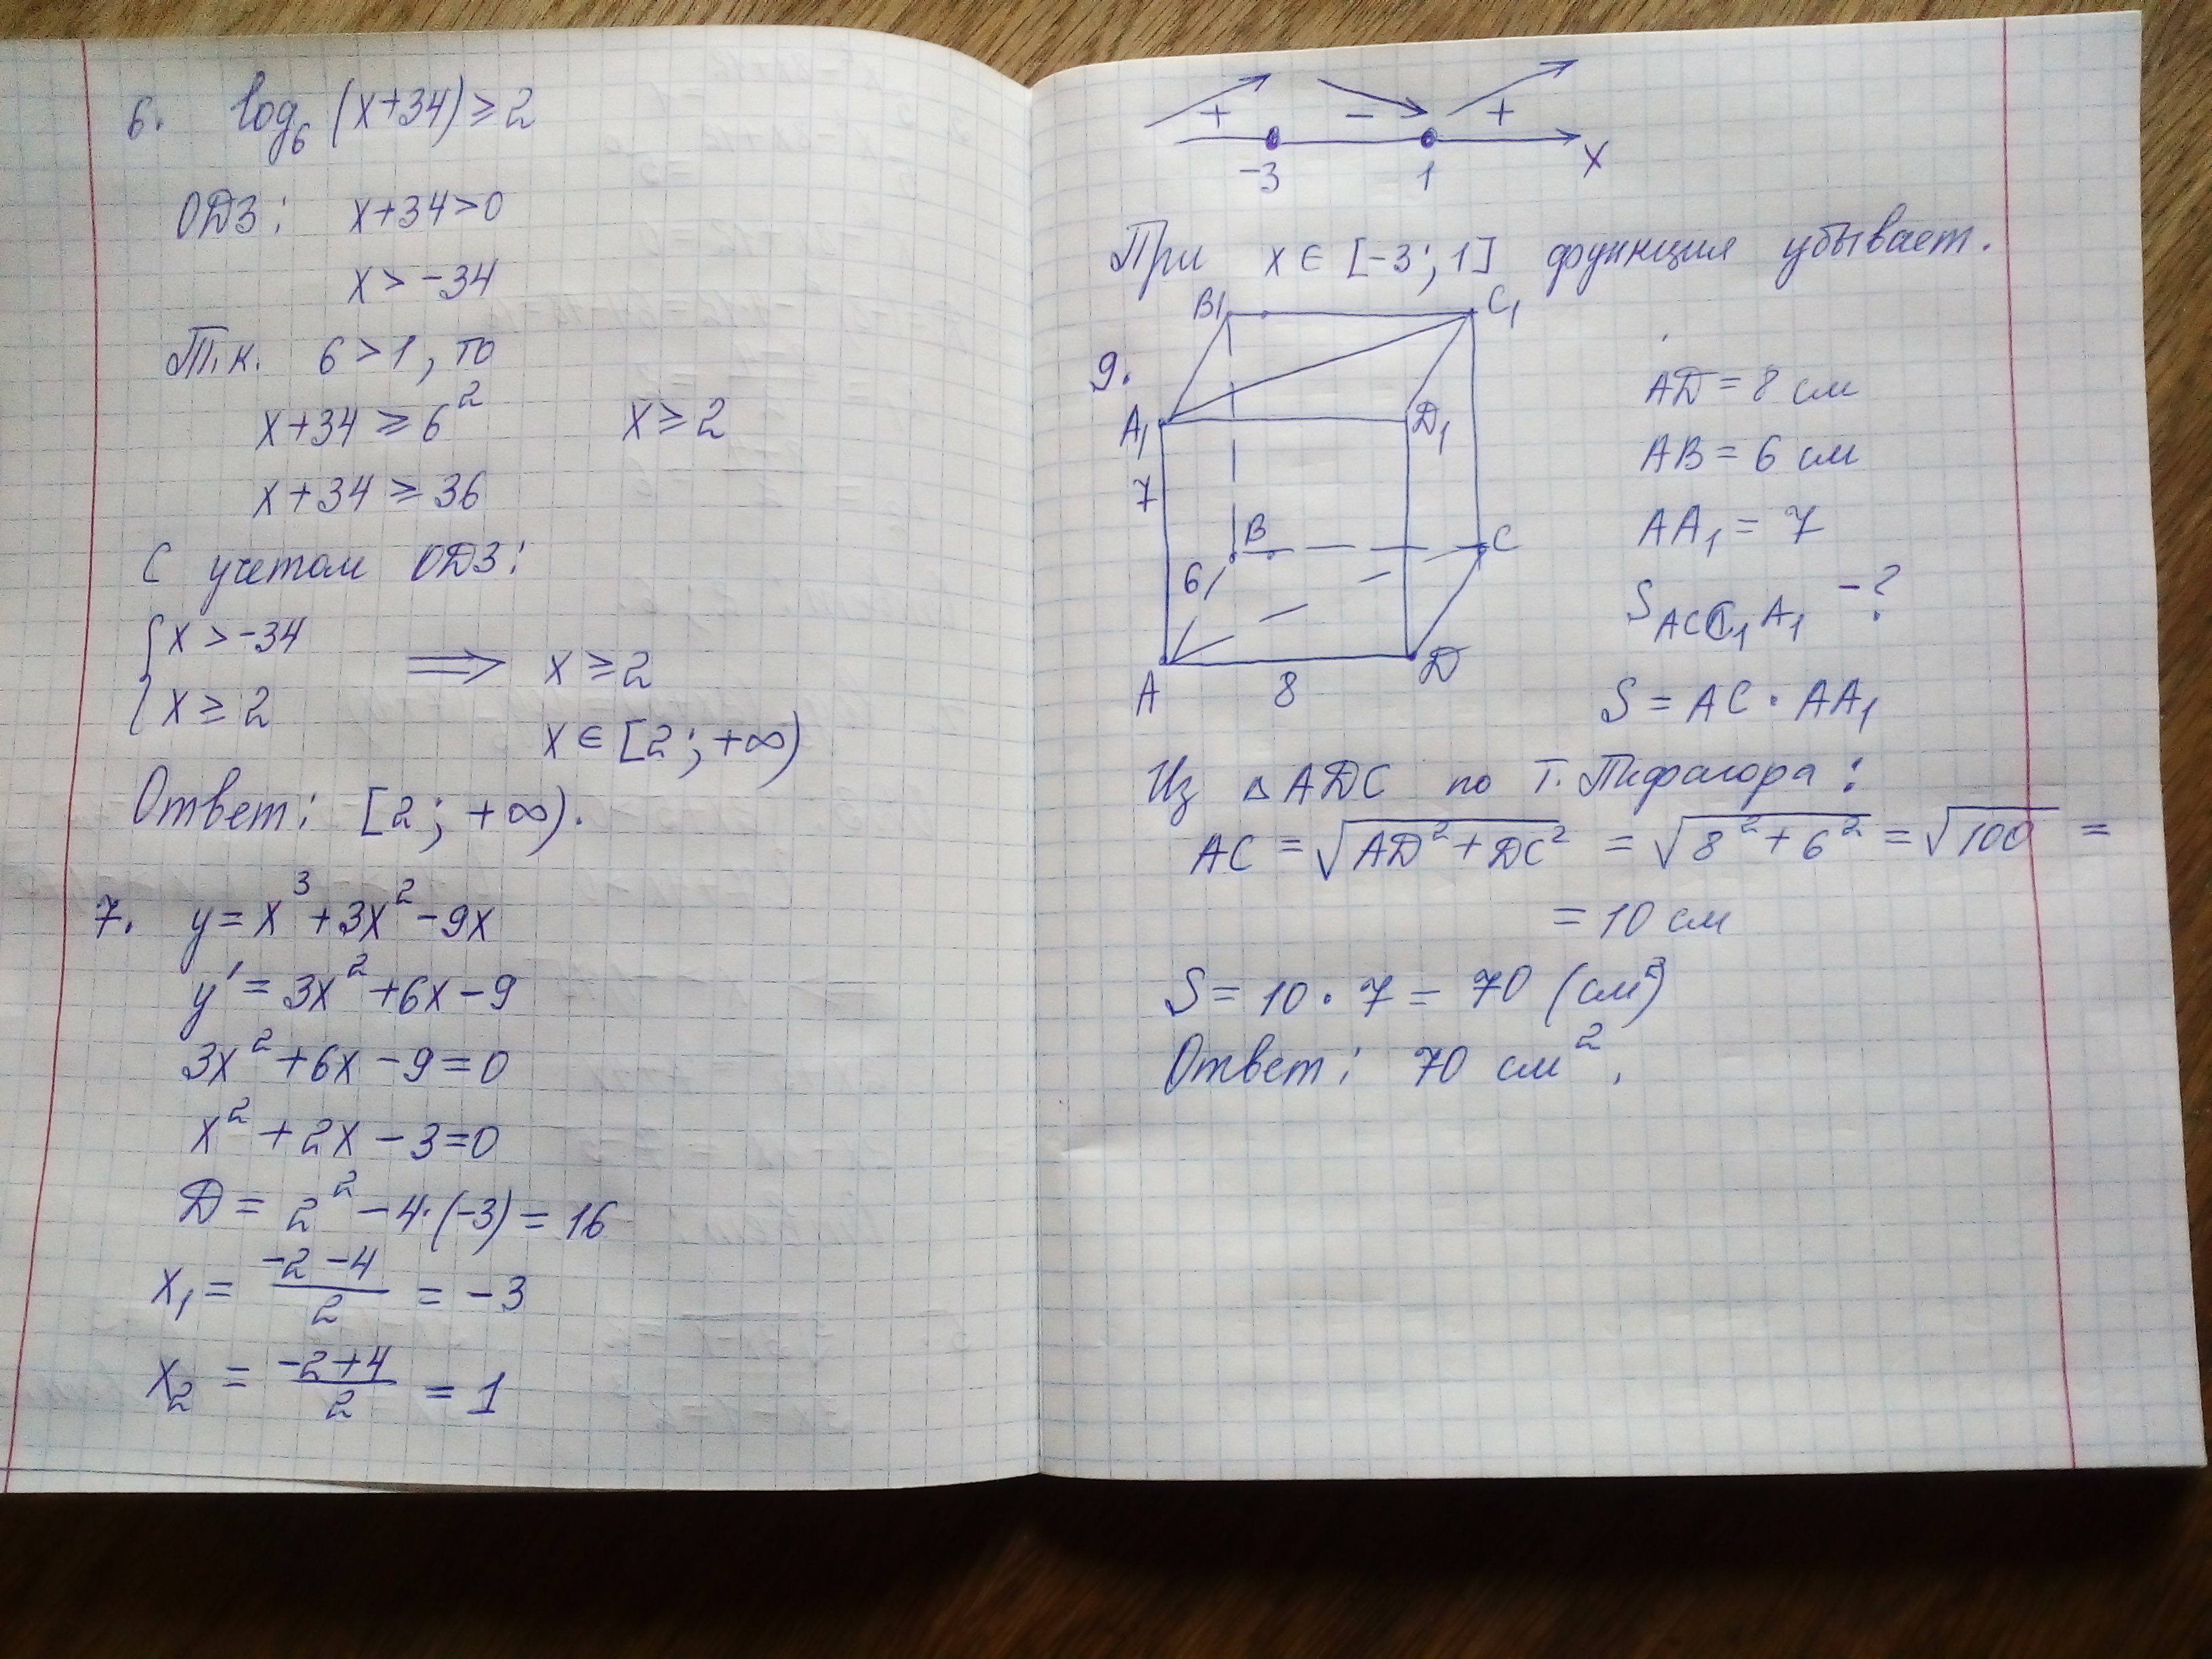 6. log₆ (x+34) ≥ 2
ОДЗ: x+34>0
x > -34
Т.к. 6 > 1, то
x+34 ≥ 6² x ≥ 2
x+34 ≥ 36
С учетом ОДЗ:
{ x > -34
{ x ≥ 2
⟹ x ≥ 2
x ∈ [2; +∞)
Ответ: [2; +∞).
7. y = x³ + 3x² - 9x
y' = 3x² + 6x - 9
3x² + 6x - 9 = 0
x² + 2x - 3 = 0
D = 2² - 4·(-3) = 16
x₁ = (-2-4)/2 = -3
x₂ = (-2+4)/2 = 1
+ - +
-3 1 x
При x ∈ [-3; 1] функция убывает.
9.
B₁ C₁
A₁ D₁
7
B C
6
A D
8
AD = 8 см
AB = 6 см
AA₁ = 7
S ACC₁A₁ - ?
S = AC · AA₁
Из △ADC по т. Пифагора:
AC = √(AD² + DC²) = √(8² + 6²) = √100 =
= 10 см
S = 10 · 7 = 70 (см²)
Ответ: 70 см².